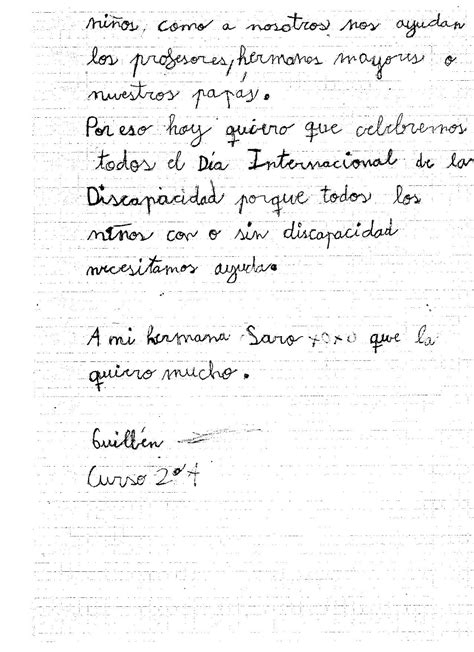 niños, como a nosotros nos ayudan
los profesores, hermanos mayores o
nuestros papás.
Por eso hoy quiero que celebremos
todos el Día Internacional de la
Discapacidad porque todos los
niños con o sin discapacidad
necesitamos ayuda.
A mi hermana Sara xoxo que la
quiero mucho.
Guillén
Curso 2º A